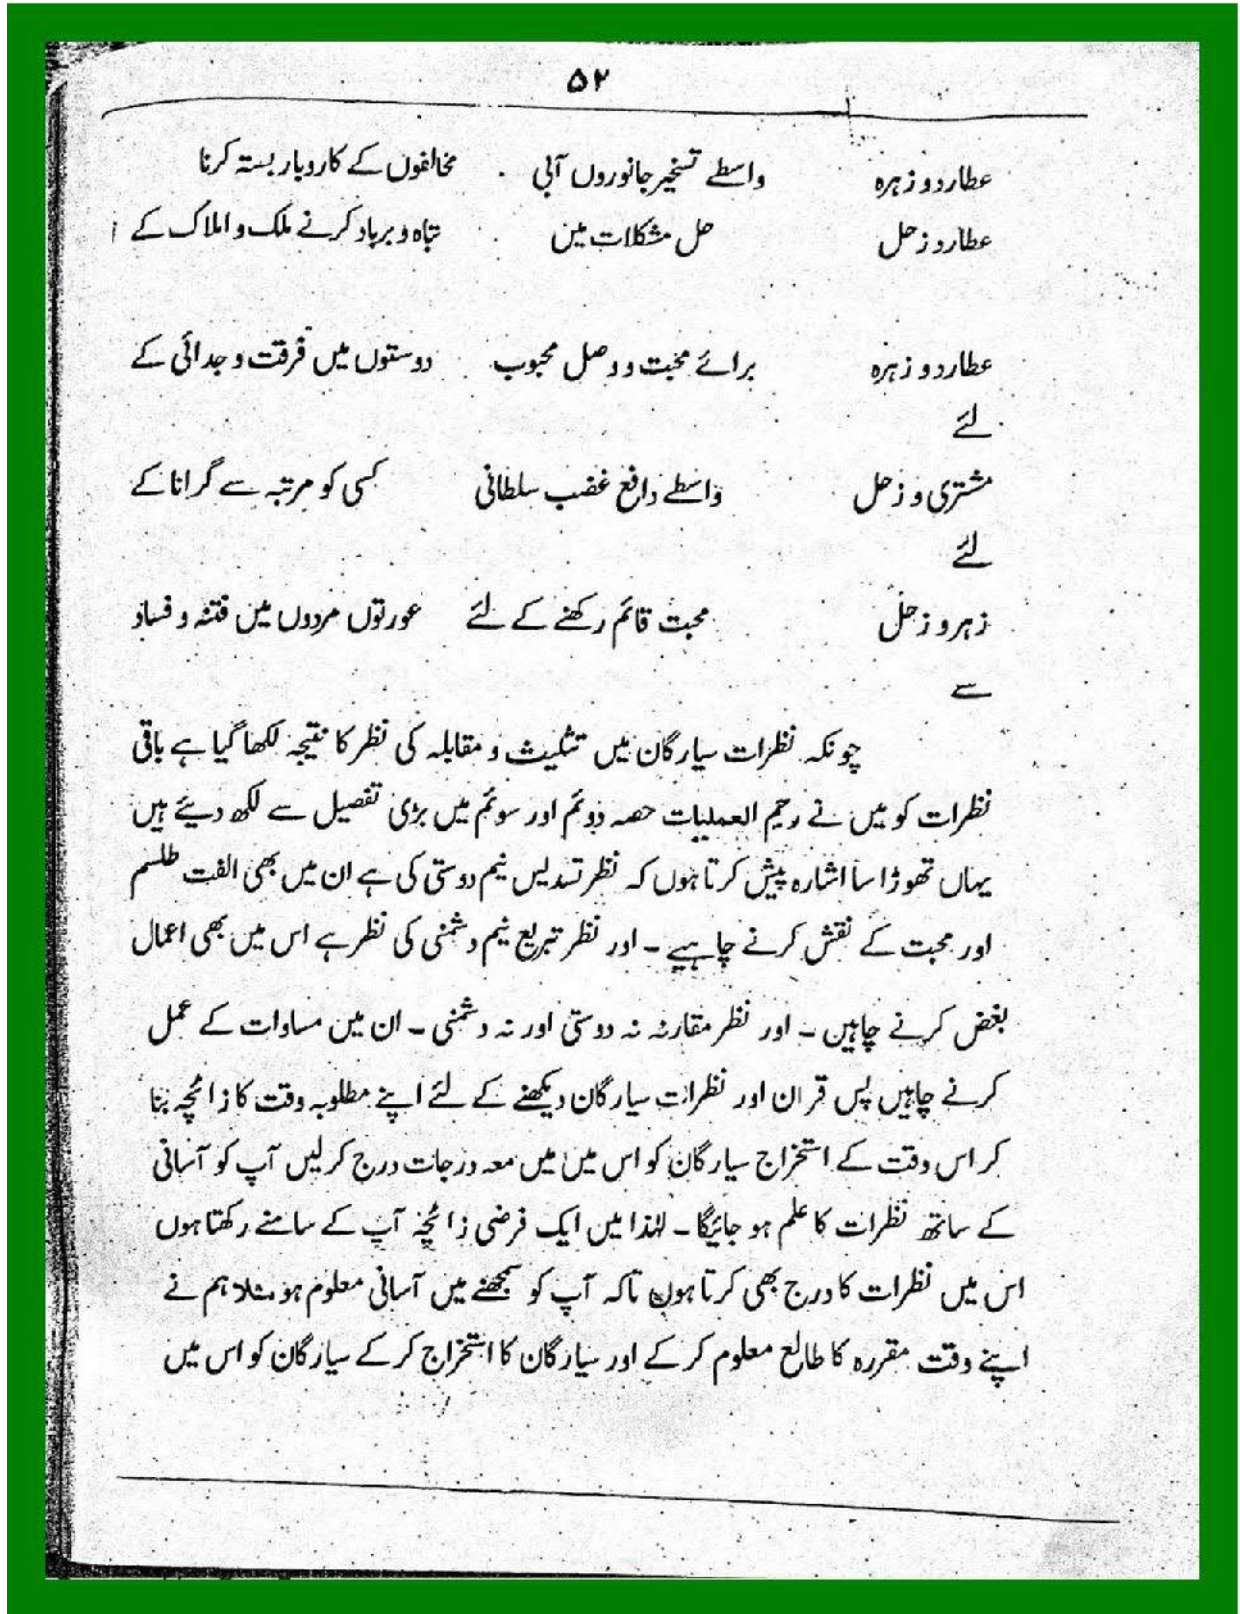 ۵۲
عطارد و زہرہ واسطے تسخیر جانوروں آبی مخالفوں کے کاروبار بستہ کرنا
عطارد و زحل حل مشکلات میں تباہ و برباد کرنے ملک و املاک کے
عطارد و زہرہ برائے محبت و وصل محبوب دوستوں میں فرقت و جدائی کے
لئے
مشتری و زحل واسطے دافع غضب سلطانی کسی کو مرتبہ سے گرانا کے
لئے
زہرو زحل محبت قائم رکھنے کے لئے عورتوں مردوں میں فتنہ و فساد
سے
چونکہ نظرات سیارگان میں تثلیث و مقابلہ کی نظر کا نتیجہ لکھا گیا ہے باقی
نظرات کو میں نے رحیم العملیات حصہ دوئم اور سوئم میں بڑی تفصیل سے لکھ دیئے ہیں
یہاں تھوڑا سا اشارہ پیش کرتا ہوں کہ نظر تسدیس نیم دوستی کی ہے ان میں بھی الفت طلسم
اور محبت کے نقش کرنے چاہیے ۔ اور نظر تربیع نیم دشمنی کی نظر ہے اس میں بھی اعمال
بغض کرنے چاہیں ۔ اور نظر مقارنہ نہ دوستی اور نہ دشمنی ۔ ان میں مساوات کے عمل
کرنے چاہیں پس قران اور نظرات سیارگان دیکھنے کے لئے اپنے مطلوبہ وقت کا زائچہ بنا
کر اس وقت کے استخراج سیارگان کو اس میں میں معہ درجات درج کرلیں آپ کو آسانی
کے ساتھ نظرات کا علم ہو جائیگا ۔ لہٰذا میں ایک فرضی زائچہ آپ کے سامنے رکھتا ہوں
اس میں نظرات کا درج بھی کرتا ہوں تاکہ آپ کو سمجھنے میں آسانی معلوم ہو مثلا ہم نے
اپنے وقت مقررہ کا طالع معلوم کر کے اور سیارگان کا استخراج کر کے سیارگان کو اس میں